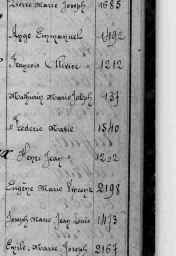 Pierre Marie Joseph 1685
Ange Emmanuel 1492
François Olivier 1212
Mathurin Marie Joseph 137
Frédéric Marie 1540
Henri Jean 1202
Eugène Marie Vincent 2198
Joseph Marie Jean Louis 1473
Emile Marie Joseph 2167